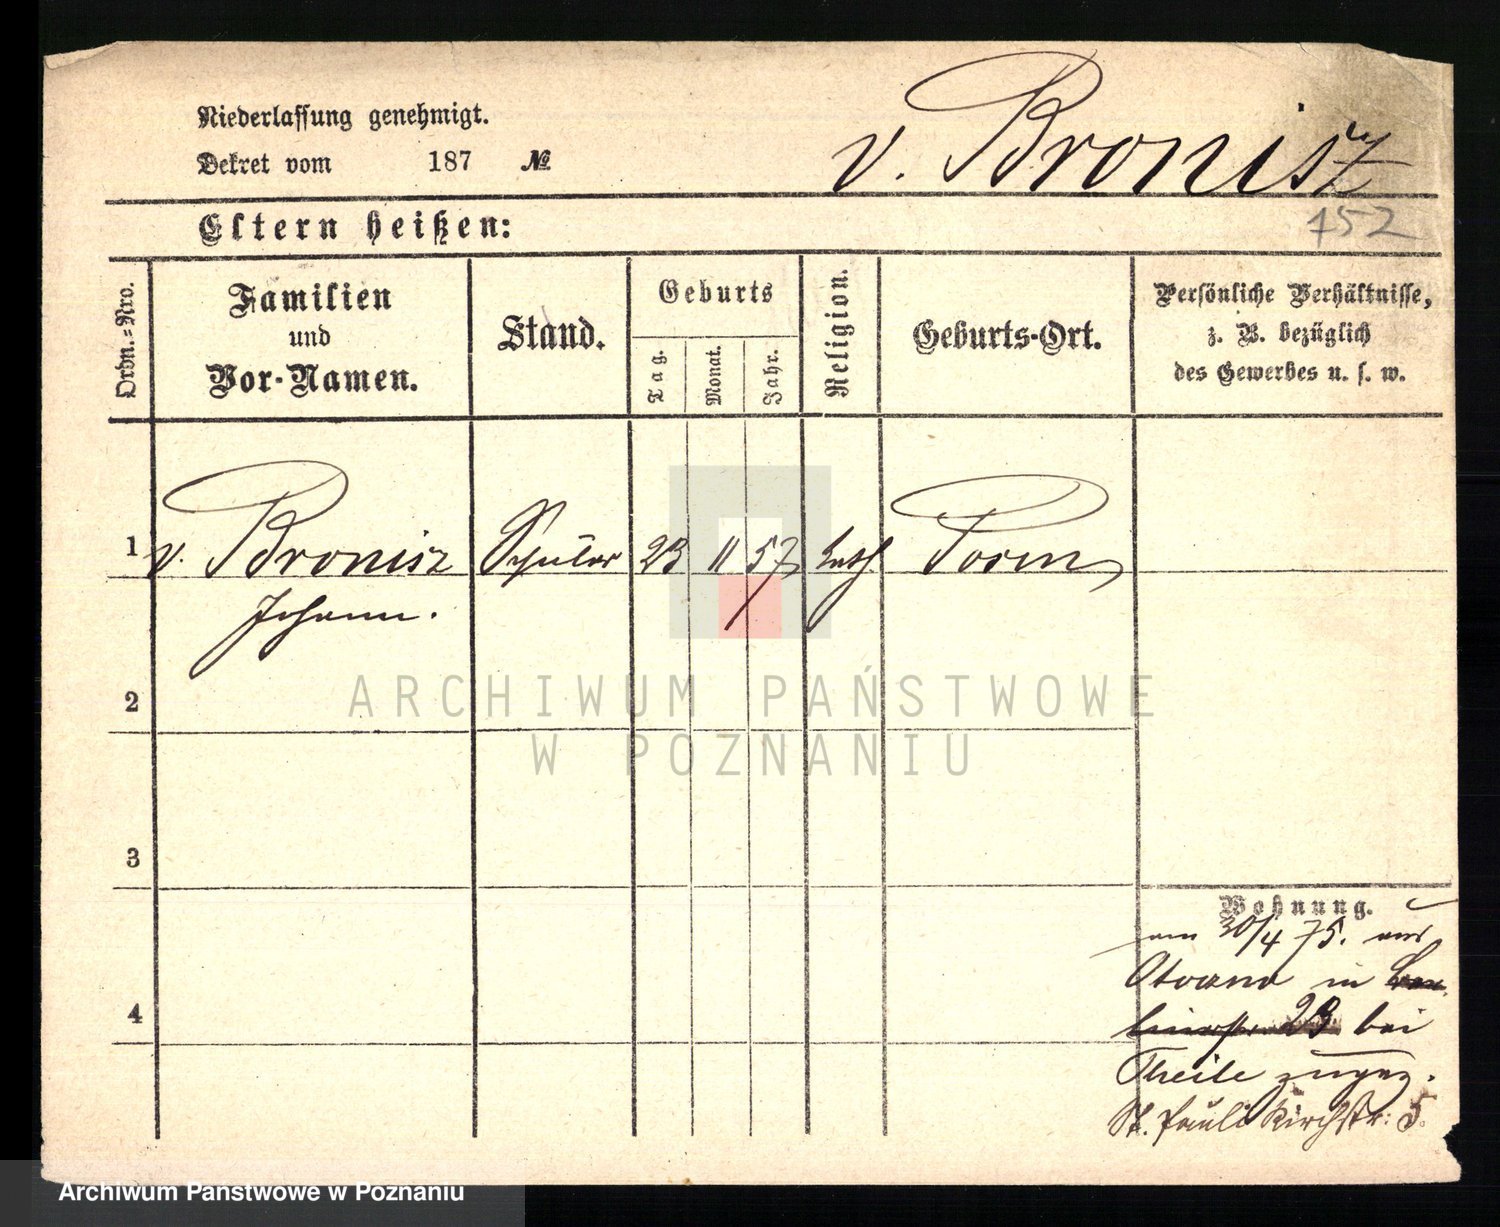 Niederlassung genehmigt.
v. Bronisz
Dekret vom 187 №
Eltern heißen:
152
Ordn.=Nro.
Familien
und
Vor-Namen.
Stand.
Geburts
Tag.
Monat.
Jahr.
Religion.
Geburts-Ort.
Persönliche Verhältnisse,
z. B. bezüglich
des Gewerbes u. s. w.
1 v. Bronisz Schüler 23 11 57 kath. Posen
Johann.
2
ARCHIWUM PAŃSTWOWE
W POZNANIU
3
Wohnung.
am 30/4 75. aus
in
23. bei
Theile zugez.
4
St. Pauli Kirchstr: 5.
Archiwum Państwowe w Poznaniu